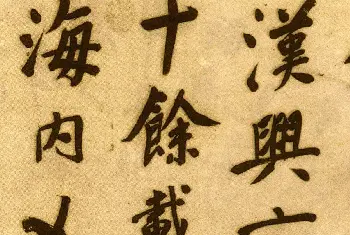 漢興
十餘載
海内